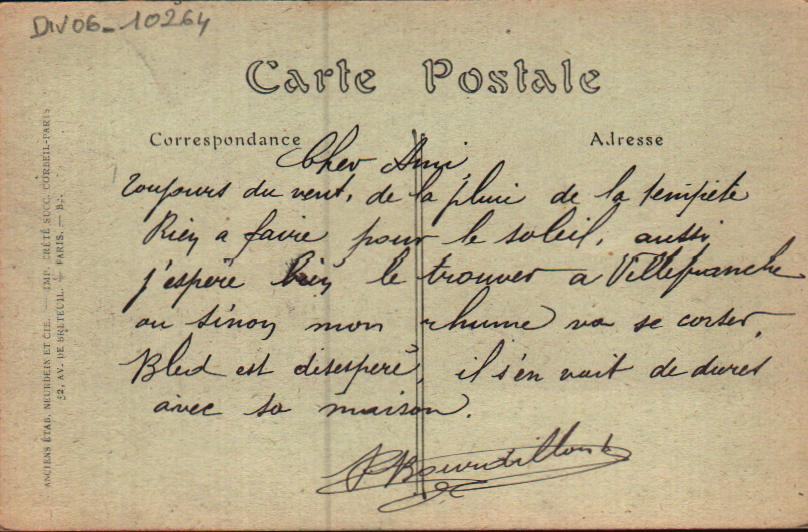 DIV06-10264
Carte Postale
Correspondance
Adresse
Cher Ami
Toujours du vent, de la pluie de la tempête
Rien a faire pour le soleil, aussi
j'espère bien le trouver a Villefranche
ou sinon mon rhume va se corser.
Bled est désespéré, il s'en voit de dures
avec sa maison.
ANCIENS ÉTAB. NEURDEIN ET CIE. — IMP. CRÉTÉ SUCC. CORBEIL-PARIS
52, AV. DE BRETEUIL. — PARIS. —